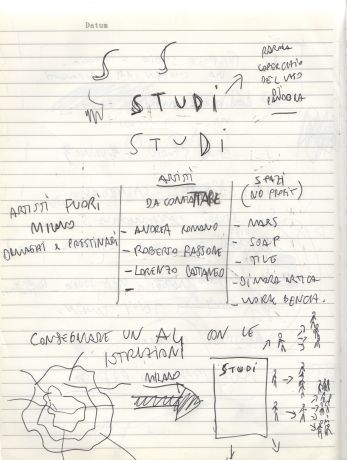 Datum
S S
PAROLA
COPERCHIO
DEL VASO
DI
PANDORA
STUDI
STUDI
ARTISTI
DA CONTATTARE
SPAZI
(NO PROFIT)
ARTISTI FUORI
MILANO
E PRESTINARI
- ANDREA ROMANO
- ROBERTO
- LORENZO CATTANEO
-
- MARS
- SOAP
- TILE
- DIMORA ARTICA
- WORK BENCH.
CONSEGNARE UN A4 CON LE
ISTRUZIONI
MILANO
STUDI